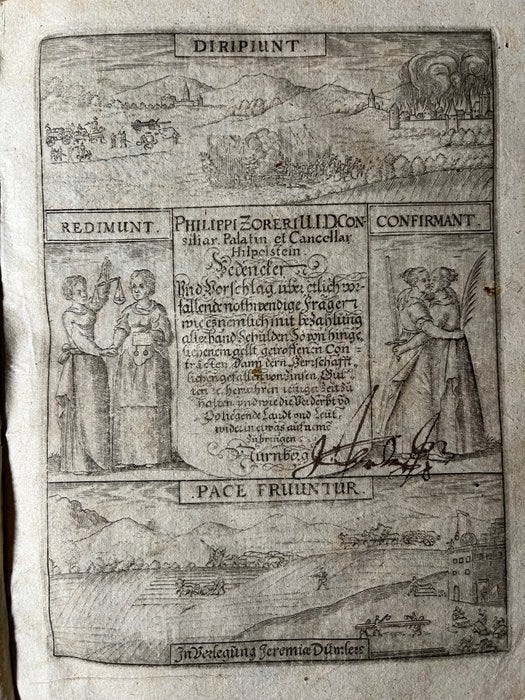 DIRIPIUNT.
REDIMUNT.
PHILIPPI ZORERI U.I.D. CON-
siliar. Palatin. et Cancellar
Hilpolstein.
Bedencken
Und Vorschlag, uber etlich vor-
fallende nothwendige Frage
wie es nemlich mit bezahlung
allerhand Schulden So wn hinge,
lichenem gellt, getroffenen Con-
träcten, dann dern
lichen gefällen von Zinsen, Gül-
ten
halten, und wie die Verderbt und
Ödligende Landt und Leüt,
wider in etwas aufneme
zubringen.
Nürnberg
CONFIRMANT.
PACE FRUUNTUR.
In Verlegung Jeremiæ Dümlers